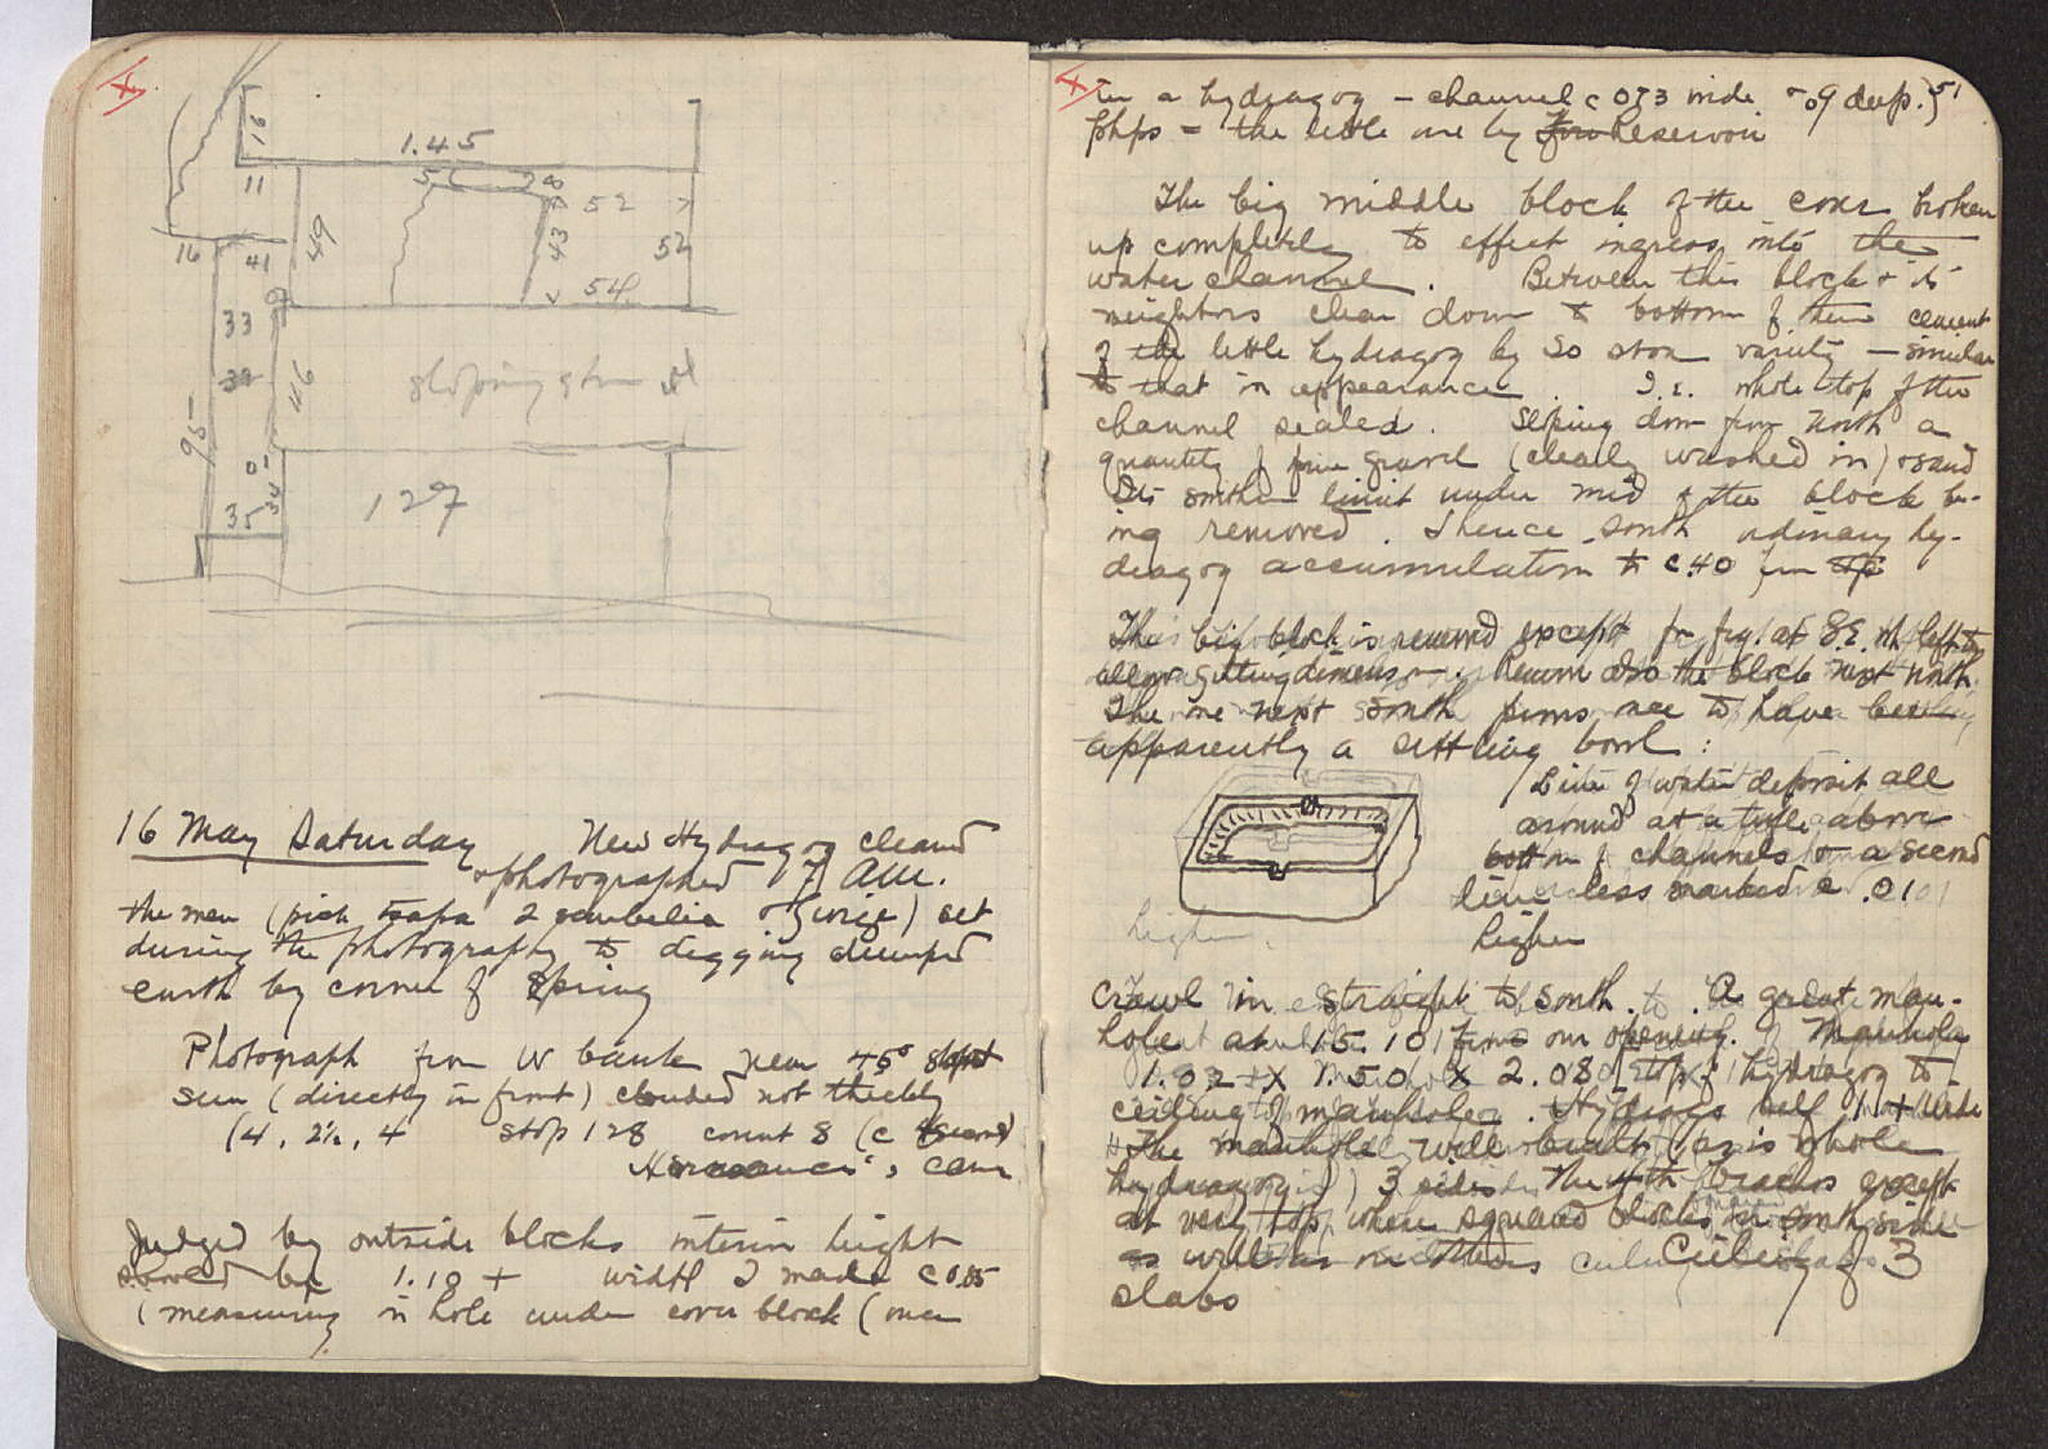 16
1.45
11
5
8
52
49
43
52
16
41
54
9
33
32
46
sloping
95
0
34
35
127
16 May Saturday New Hydragog cleaned
& photographed 7 AM.
the men (pick 2 & ) set
during the photography to digging dumped
earth by corner of Spring
Photograph from W bank near 45°
sun (directly in front) clouded not thickly
(4, 2½, 4 stop 128 count 8 (c
cam
Judged by outside blocks interior height
1.10 + width I made c 0.85
(measuring in hole under cover block (over
51
in a hydragog – channel c 0.73 wide & .09 deep.)
phps = the little one by Reservoir
The big middle block of the cover broken
up completely to effect ingress into the
water channel. Between this block & its
neighbors clear down to bottom of them cement
of the little hydragog by So stoa variety – similar
to that in appearance. I.e. whole top of the
channel sealed. Sloping down from North a
quantity of fine gravel (clearly washed in) & sand
Its southern limit under mid of the block be-
ing removed. Thence south ordinary hy-
dragog accumulation to c .40 from top
This big block is removed except for frg. at S.E. left to
allow getting dimens . Remove also the block next north.
The one next south proves to have been
apparently a settling bowl:
Line of water deposit all
around at a trifle above
bottom of channels & a second
line less marked c .01
higher
Crawl in straight to south. A great man-
hole at 15.10 from our opening. Manhole
1.02 + X 1.50 X 2.08 [top of hydragog to
ceiling of manhole. Hydragog self 1 + wide
The manhole well built (as is whole
hydragog) 3 sides The 4th except
at very top where squared blocks in south side
as well as in others Ceiling of 3
slabs